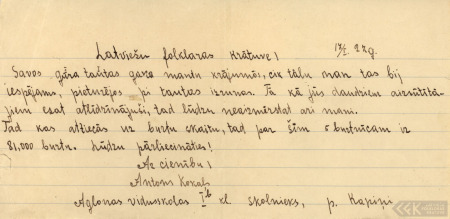 Latviešu folkloras krātuvei
Savos gāra tautas gara mantu krājumos, cik tālu man tas bij
iespējams, pieturējos pi tautas izrunas. Tā kā jūs daudziem aizsūtītā-
jiem esat atlīdzinājuši, tad lūdzu neaizmirstat arī mani.
Tad kas attiecās uz burtu skaitu, tad par šīm 5 burtnīcām ir
81,000 burtu. Lūdzu pārliecināties!
Ar cienību!
Antons Kokals
Aglonas vidusskolas I b kl. skolnieks, p. Kapiņi